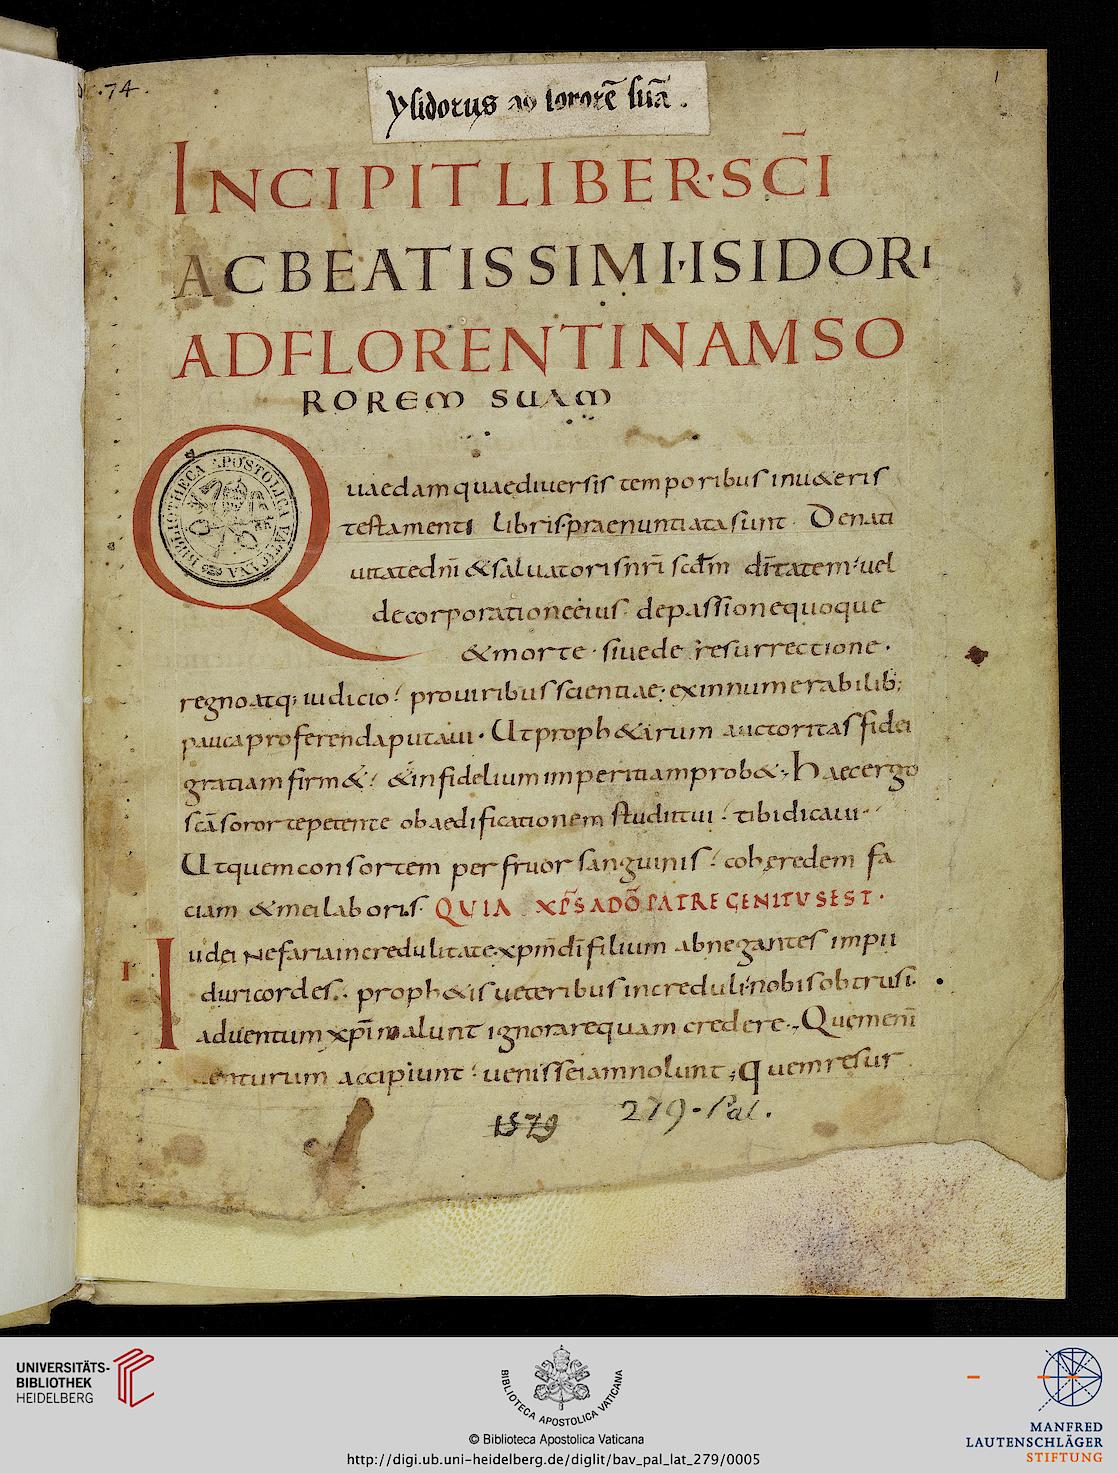 .74.
1
ysidorus ad sororē suā.
INCIPIT LIBER·SC̄I
AC BEATISSIMI·ISIDORI
AD FLORENTINAM SO
ROREM SUAM
BIBLIOTHECA APOSTOLICA VATICANA
Quaedam quae diuersis temporibus inu&eris
testamenti libris praenuntiata sunt. De nati
uitate dn̄i & saluatoris nr̄i scdm diu̅tatem uel
de corporatione eius. de passione quoque
& morte. siue de resurrectione.
regno atq; iudicio. pro uiribus scientiae. ex innumerabilib;
pauca proferenda putaui. Ut proph&arum auctoritas fidei
gratiam firm&. & infidelium imperitiam prob&; Haec ergo
sc̄a soror te petente ob aedificationem studii tui. tibi dicaui.
Ut quem consortem per fruor sanguinis. coheredem fa
ciam & mei laboris. QUIA XP̄S A DŌ PATRE GENITUS EST.
I
Iudei nefaria incredulitate xpm̄ dī filium abnegantes impii
duri cordes. proph&is ueteribus increduli. nobis obtrusi.
aduentum xpī malunt ignorare quam credere. Quem enī
uenturum accipiunt. uenisse iam nolunt; quem resur
1579
279-Pal.
UNIVERSITÄTS-
BIBLIOTHEK
HEIDELBERG
BIBLIOTECA APOSTOLICA VATICANA
© Biblioteca Apostolica Vaticana
http://digi.ub.uni-heidelberg.de/diglit/bav_pal_lat_279/0005
MANFRED
LAUTENSCHLÄGER
STIFTUNG